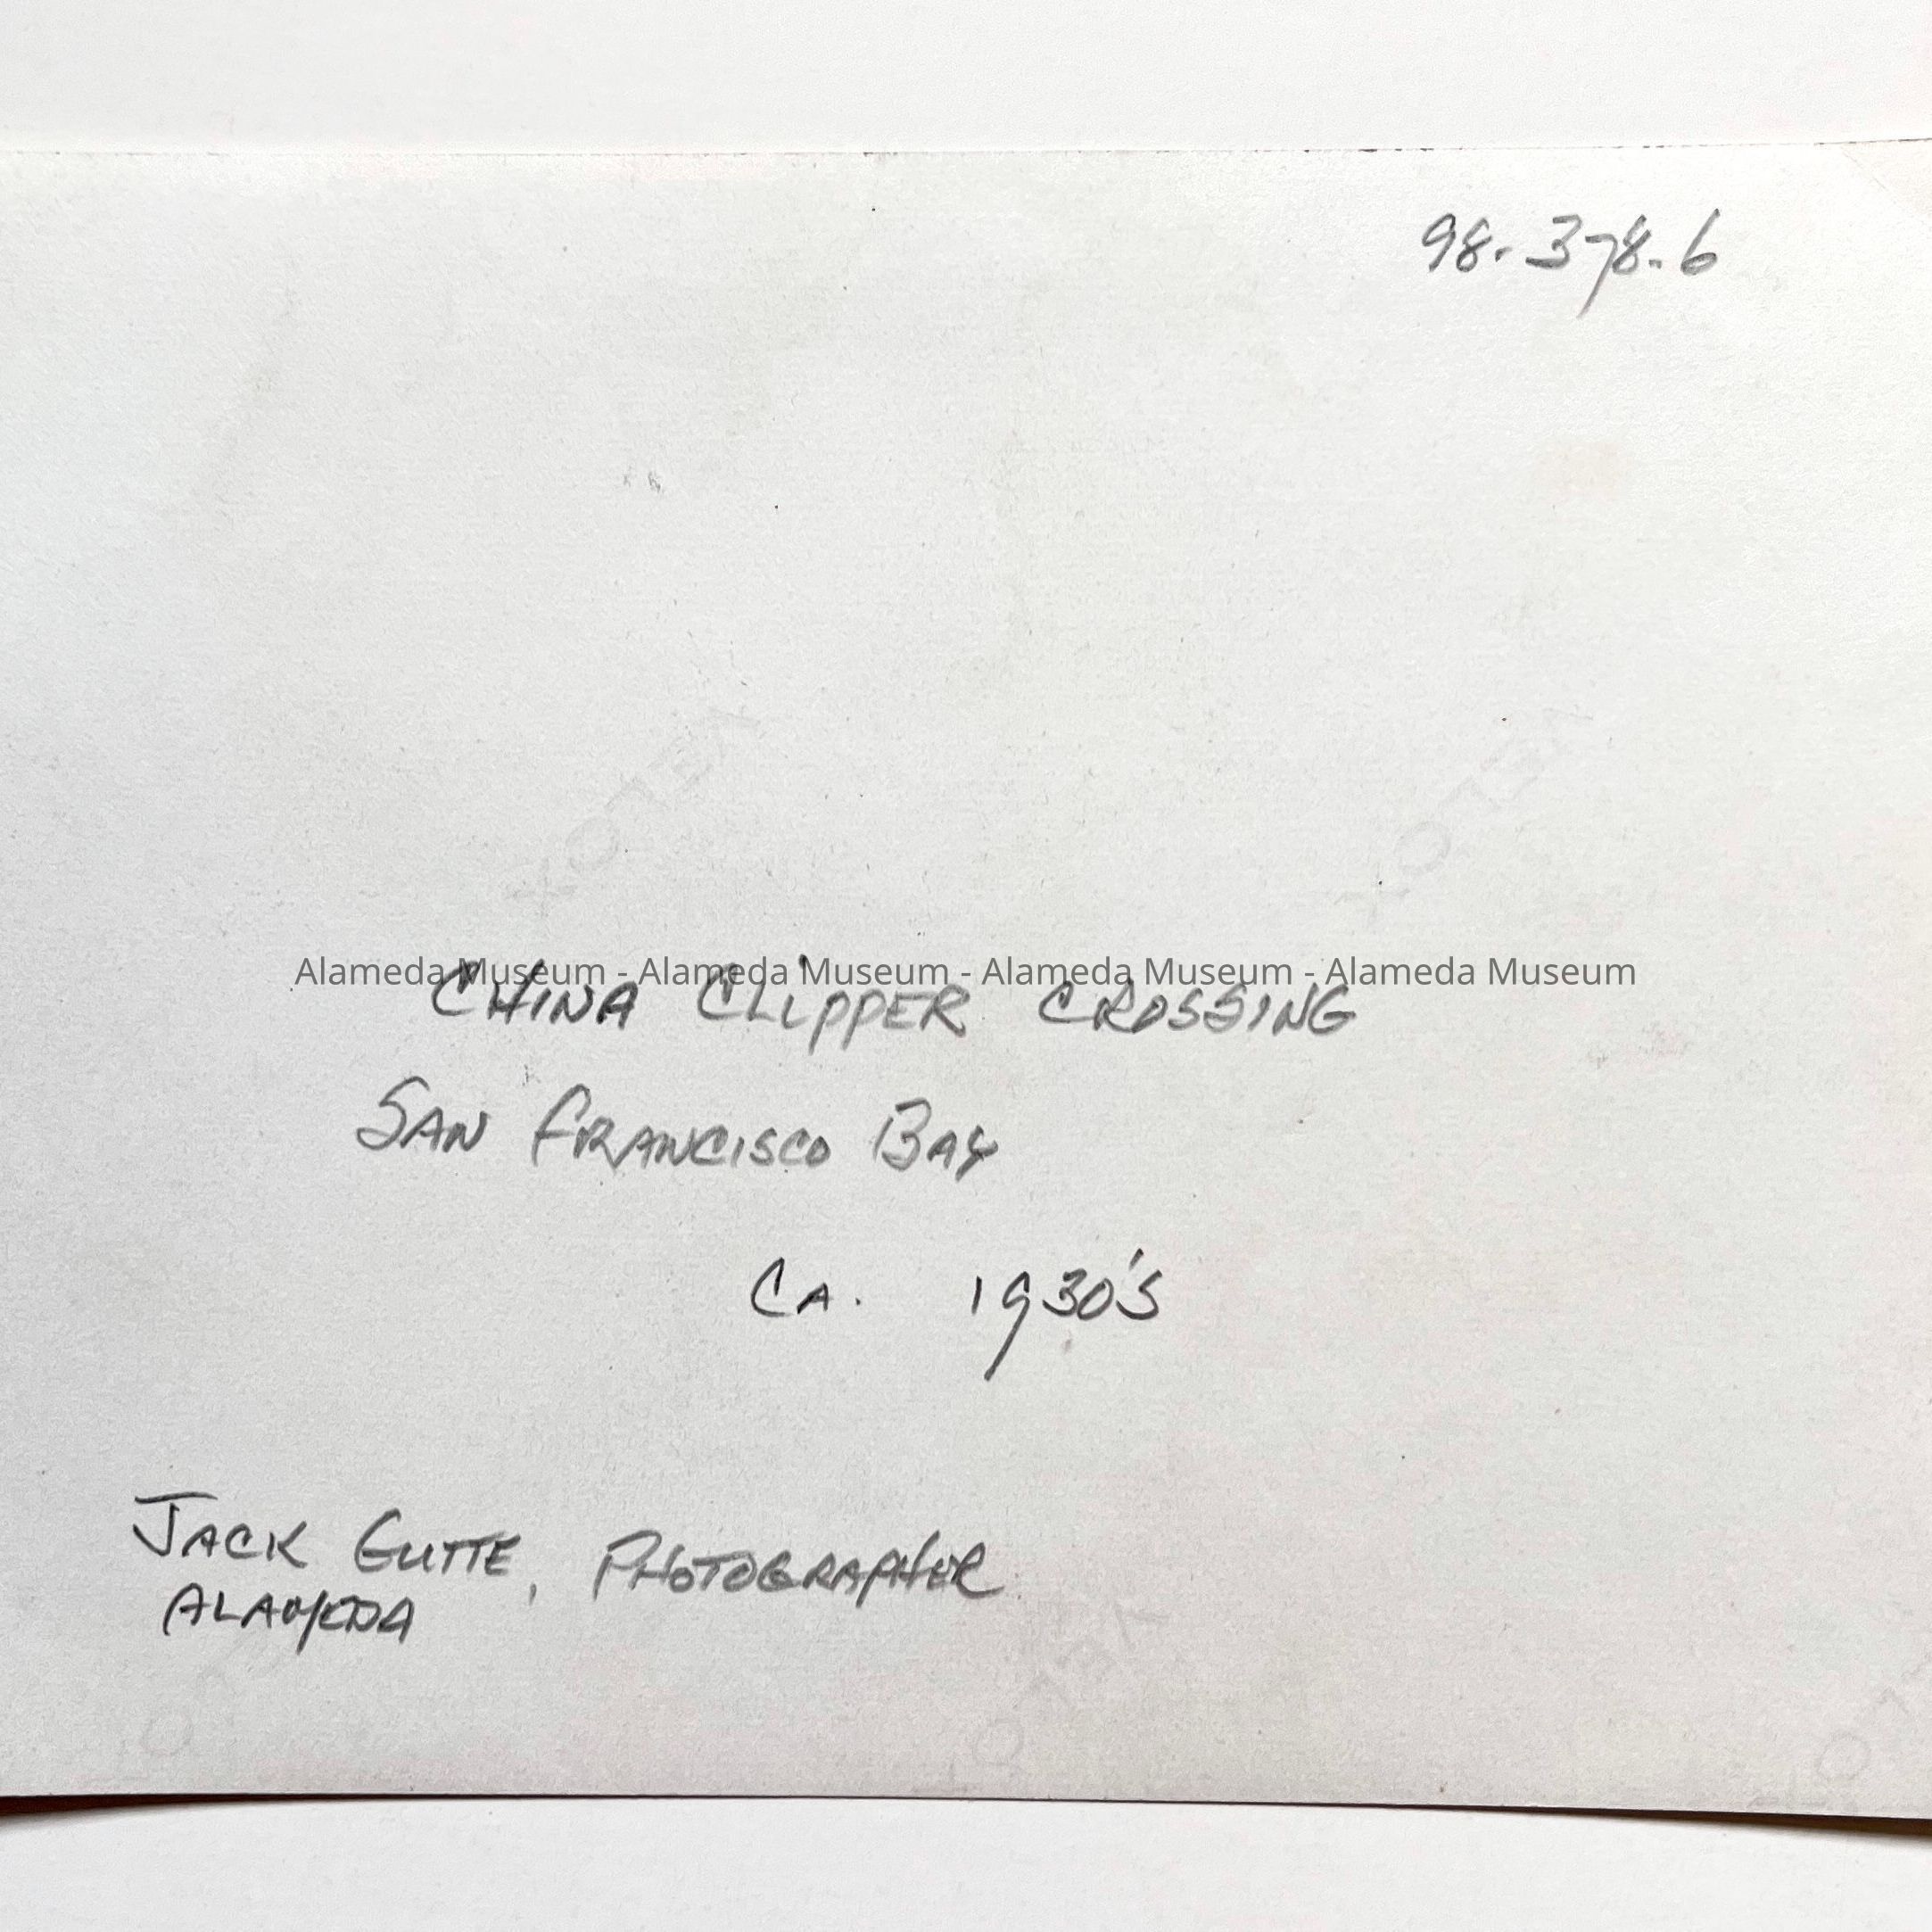 98-378-6
VELOX VELOX
Alameda Museum - Alameda Museum - Alameda Museum - Alameda Museum
CHINA CLIPPER CROSSING
SAN FRANCISCO BAY
CA. 1930'S
JACK GUTTE, PHOTOGRAPHER
ALAMEDA
VELOX